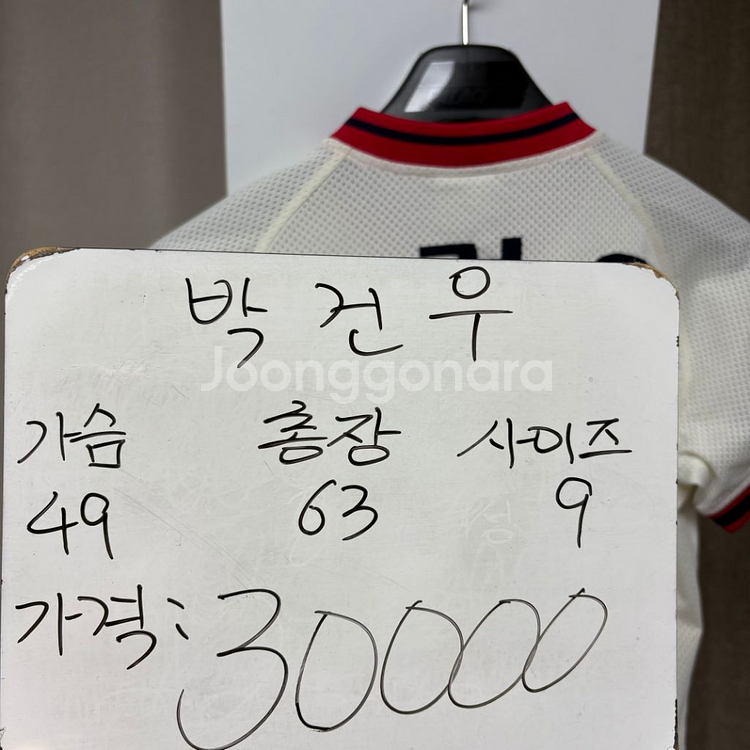 박건우
Joonggonara
가슴 총장 사이즈
49 63 9
가격: 30000